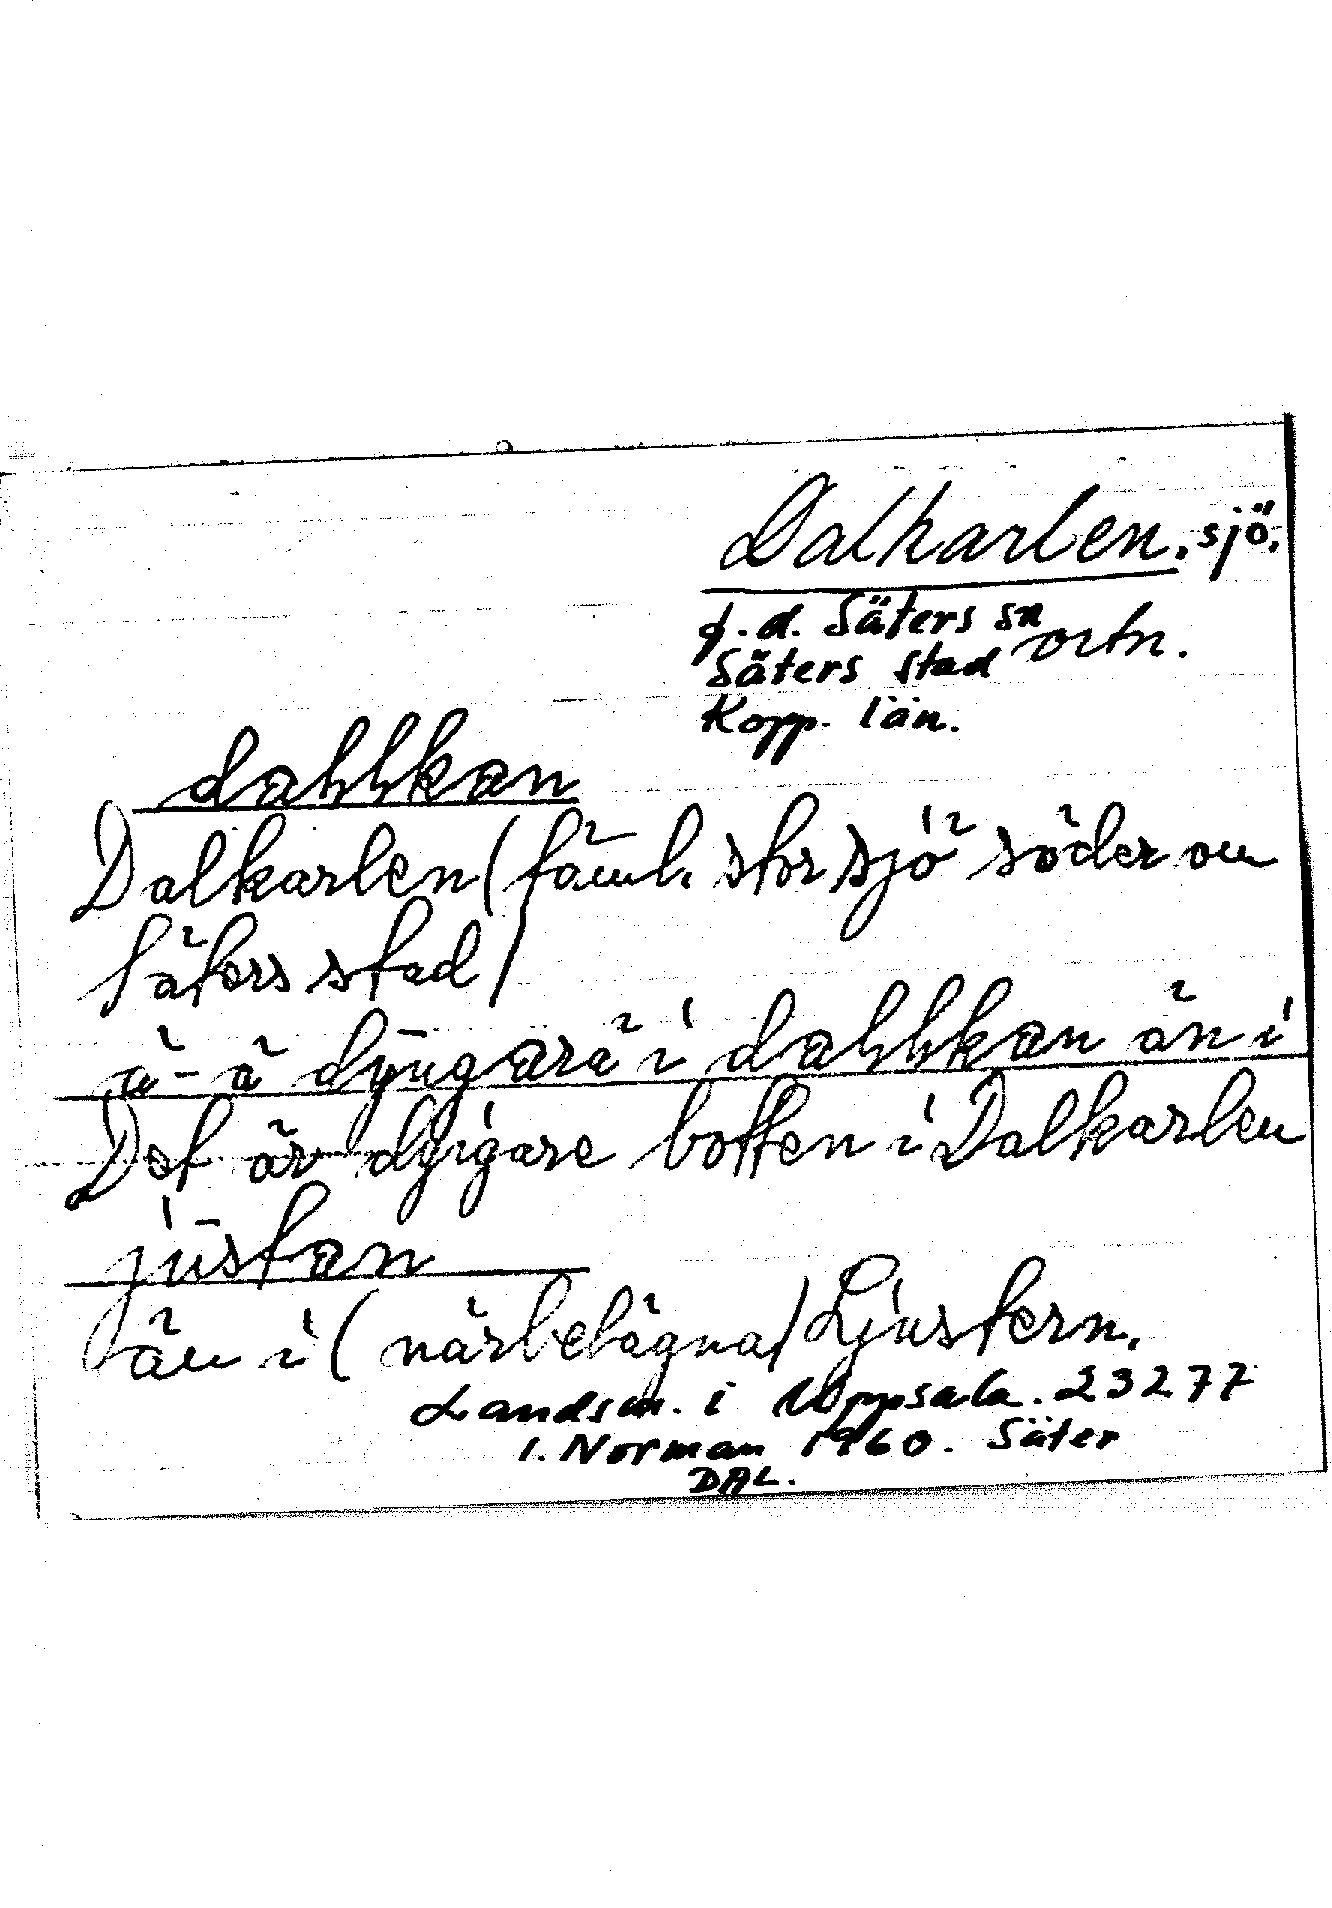 Dalkarlen. sjö.
f.d. Säters sn ortn.
Säters stad
Kopp. län.
dahlkan
Dalkarlen (täml. stor sjö söder om
Säters stad)
ä-ä dȳngarä i dahlkan än i
Det är dyigare botten i Dalkarlen
jūstan
än i (närbelägna) Ljustern.
Landsm. i Uppsala. 23277
I. Norman 1960. Säter
DAL.